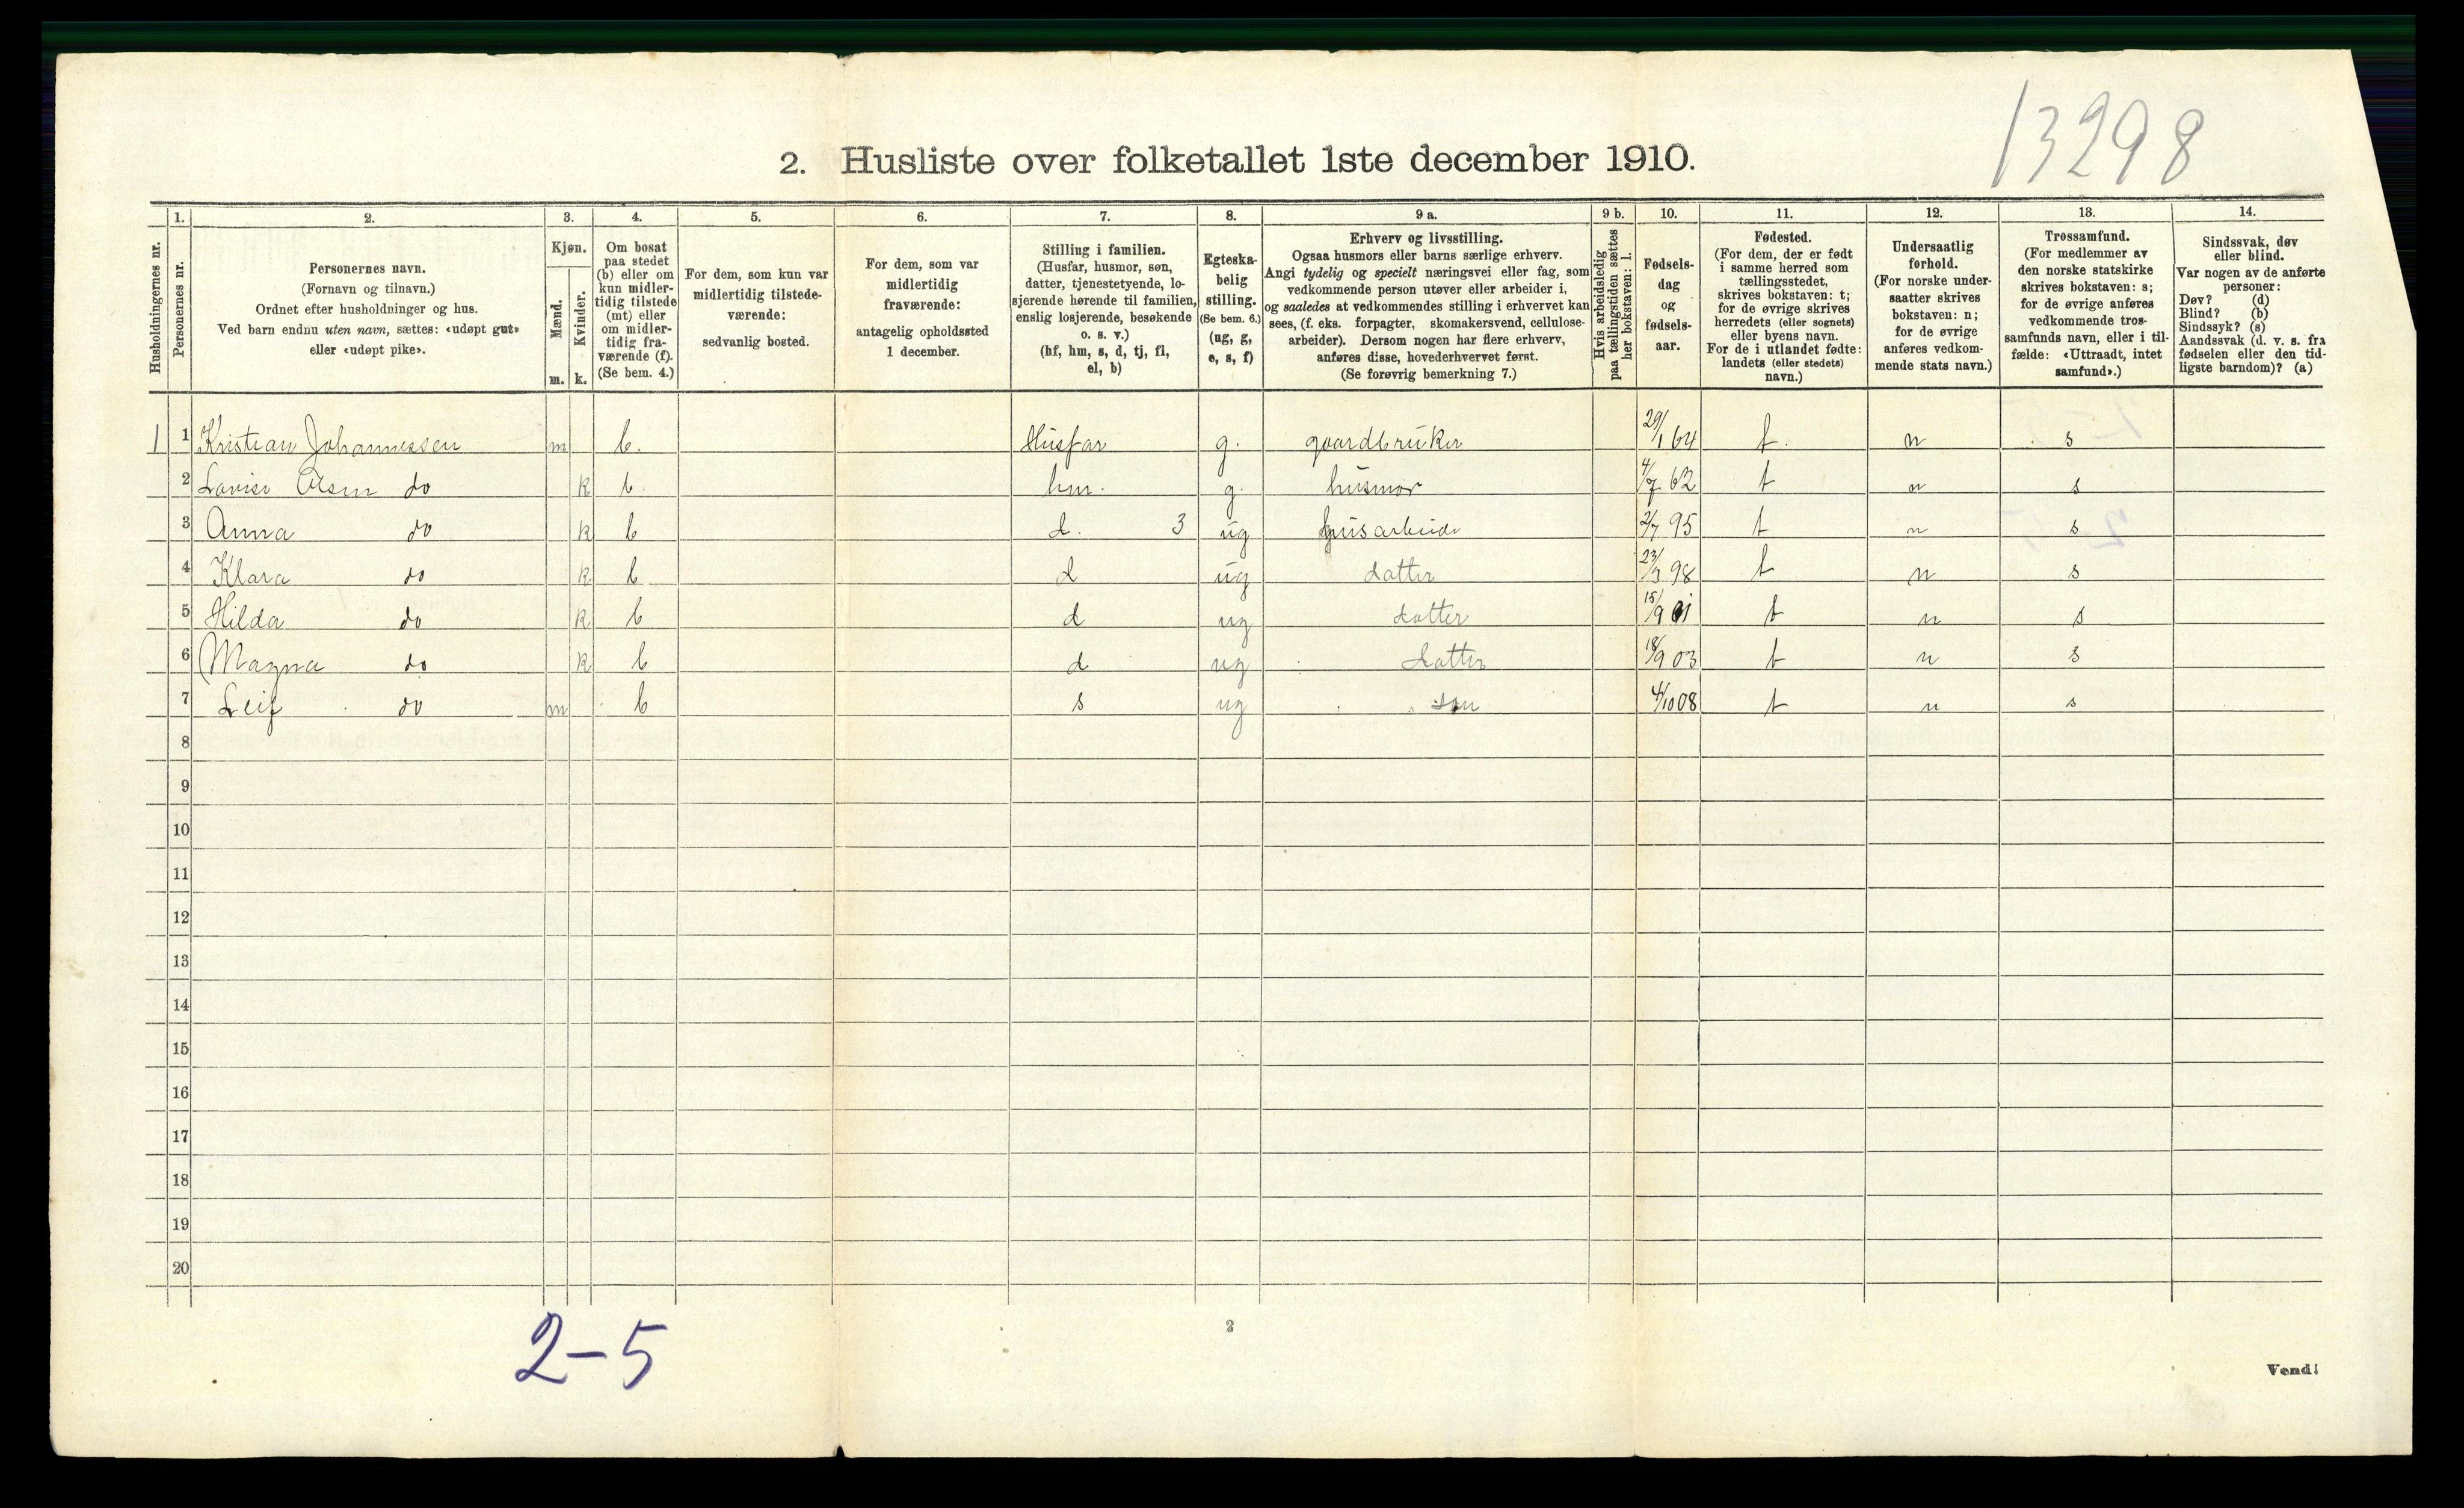 13298
2. Husliste over folketallet 1ste december 1910.
Husholdningernes nr.
1. Personernes nr.
2. Personernes navn.
(Fornavn og tilnavn.)
Ordnet efter husholdninger og hus.
Ved barn endnu uten navn, sættes: «udøpt gut»
eller «udøpt pike».
3. Kjøn.
Mænd. m.
Kvinder. k.
4. Om bosat
paa stedet
(b) eller om
kun midler-
tidig tilstede
(mt) eller
om midler-
tidig fra-
værende (f).
(Se bem. 4.)
5. For dem, som kun var
midlertidig tilstede-
værende:
sedvanlig bosted.
6. For dem, som var
midlertidig
fraværende:
antagelig opholdssted
1 december.
7. Stilling i familien.
(Husfar, husmor, søn,
datter, tjenestetyende, lo-
sjerende hørende til familien,
enslig losjerende, besøkende
o. s. v.)
(hf, hm, s, d, tj, fl,
el, b)
8. Egteska-
belig
stilling.
(Se bem. 6.)
(ug, g,
e, s, f)
9 a. Erhverv og livsstilling.
Ogsaa husmors eller barns særlige erhverv.
Angi tydelig og specielt næringsvei eller fag, som
vedkommende person utøver eller arbeider i,
og saaledes at vedkommendes stilling i erhvervet kan
sees, (f. eks. forpagter, skomakersvend, cellulose-
arbeider). Dersom nogen har flere erhverv,
anføres disse, hovederhvervet først.
(Se forøvrig bemerkning 7.)
9 b. Hvis arbeidsledig
paa tællingstiden sættes
her bokstaven: l.
10. Fødsels-
dag
og
fødsels-
aar.
11. Fødested.
(For dem, der er født
i samme herred som
tællingsstedet,
skrives bokstaven: t;
for de øvrige skrives
herredets (eller sognets)
eller byens navn.
For de i utlandet fødte:
landets (eller stedets)
navn.)
12. Undersaatlig
forhold.
(For norske under-
saatter skrives
bokstaven: n;
for de øvrige
anføres vedkom-
mende stats navn.)
13. Trossamfund.
(For medlemmer av
den norske statskirke
skrives bokstaven: s;
for de øvrige anføres
vedkommende tros-
samfunds navn, eller i til-
fælde: «Uttraadt, intet
samfund».)
14. Sindssvak, døv
eller blind.
Var nogen av de anførte
personer:
Døv? (d)
Blind? (b)
Sindssyk? (s)
Aandssvak (d. v. s. fra
fødselen eller den tid-
ligste barndom)? (a)
1 1 Kristian Johannessen m b. Husfar g. gaardbruker 29/1 64 t. n s
2 Lovise Olsen do k b. hm. g. husmor 4/7 62 t n s
3 Anna do k b d. 3 ug husarbeide 2/7 95 t n s
4 Klara do k b d ug datter 23/3 98 t n s
5 Hilda do k b d ug datter 15/9 01 t n s
6 Magna do k b d ug datter 18/9 03 t n s
7 Leif do m b s ug søn 4/10 08 t n s
8
9
10
11
12
13
14
15
16
17
18
19
20
2-5
2
Vend!